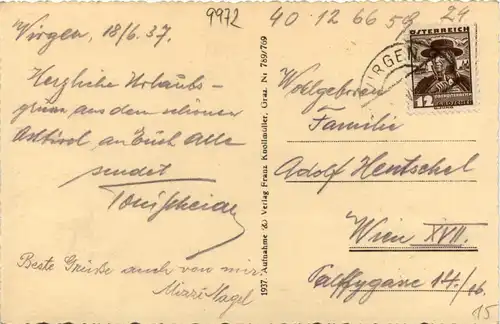 9972
40 12 66 58
24
Virgen, 18/6.37.
Herzliche Urlaubs-
grüsse aus dem schönen
Osttirol, an Euch alle
sendet
Beste Grüße auch von mir
Mizzi Nagel
1937. Aufnahme u. Verlag Franz Knollmüller, Graz. Nr 769/769
VIRGEN
ÖSTERREICH
12
GROSCHEN
Wolgeboren
Familie
Adolf Hentschel
Wien XVII.
Palffygasse 14/16
15